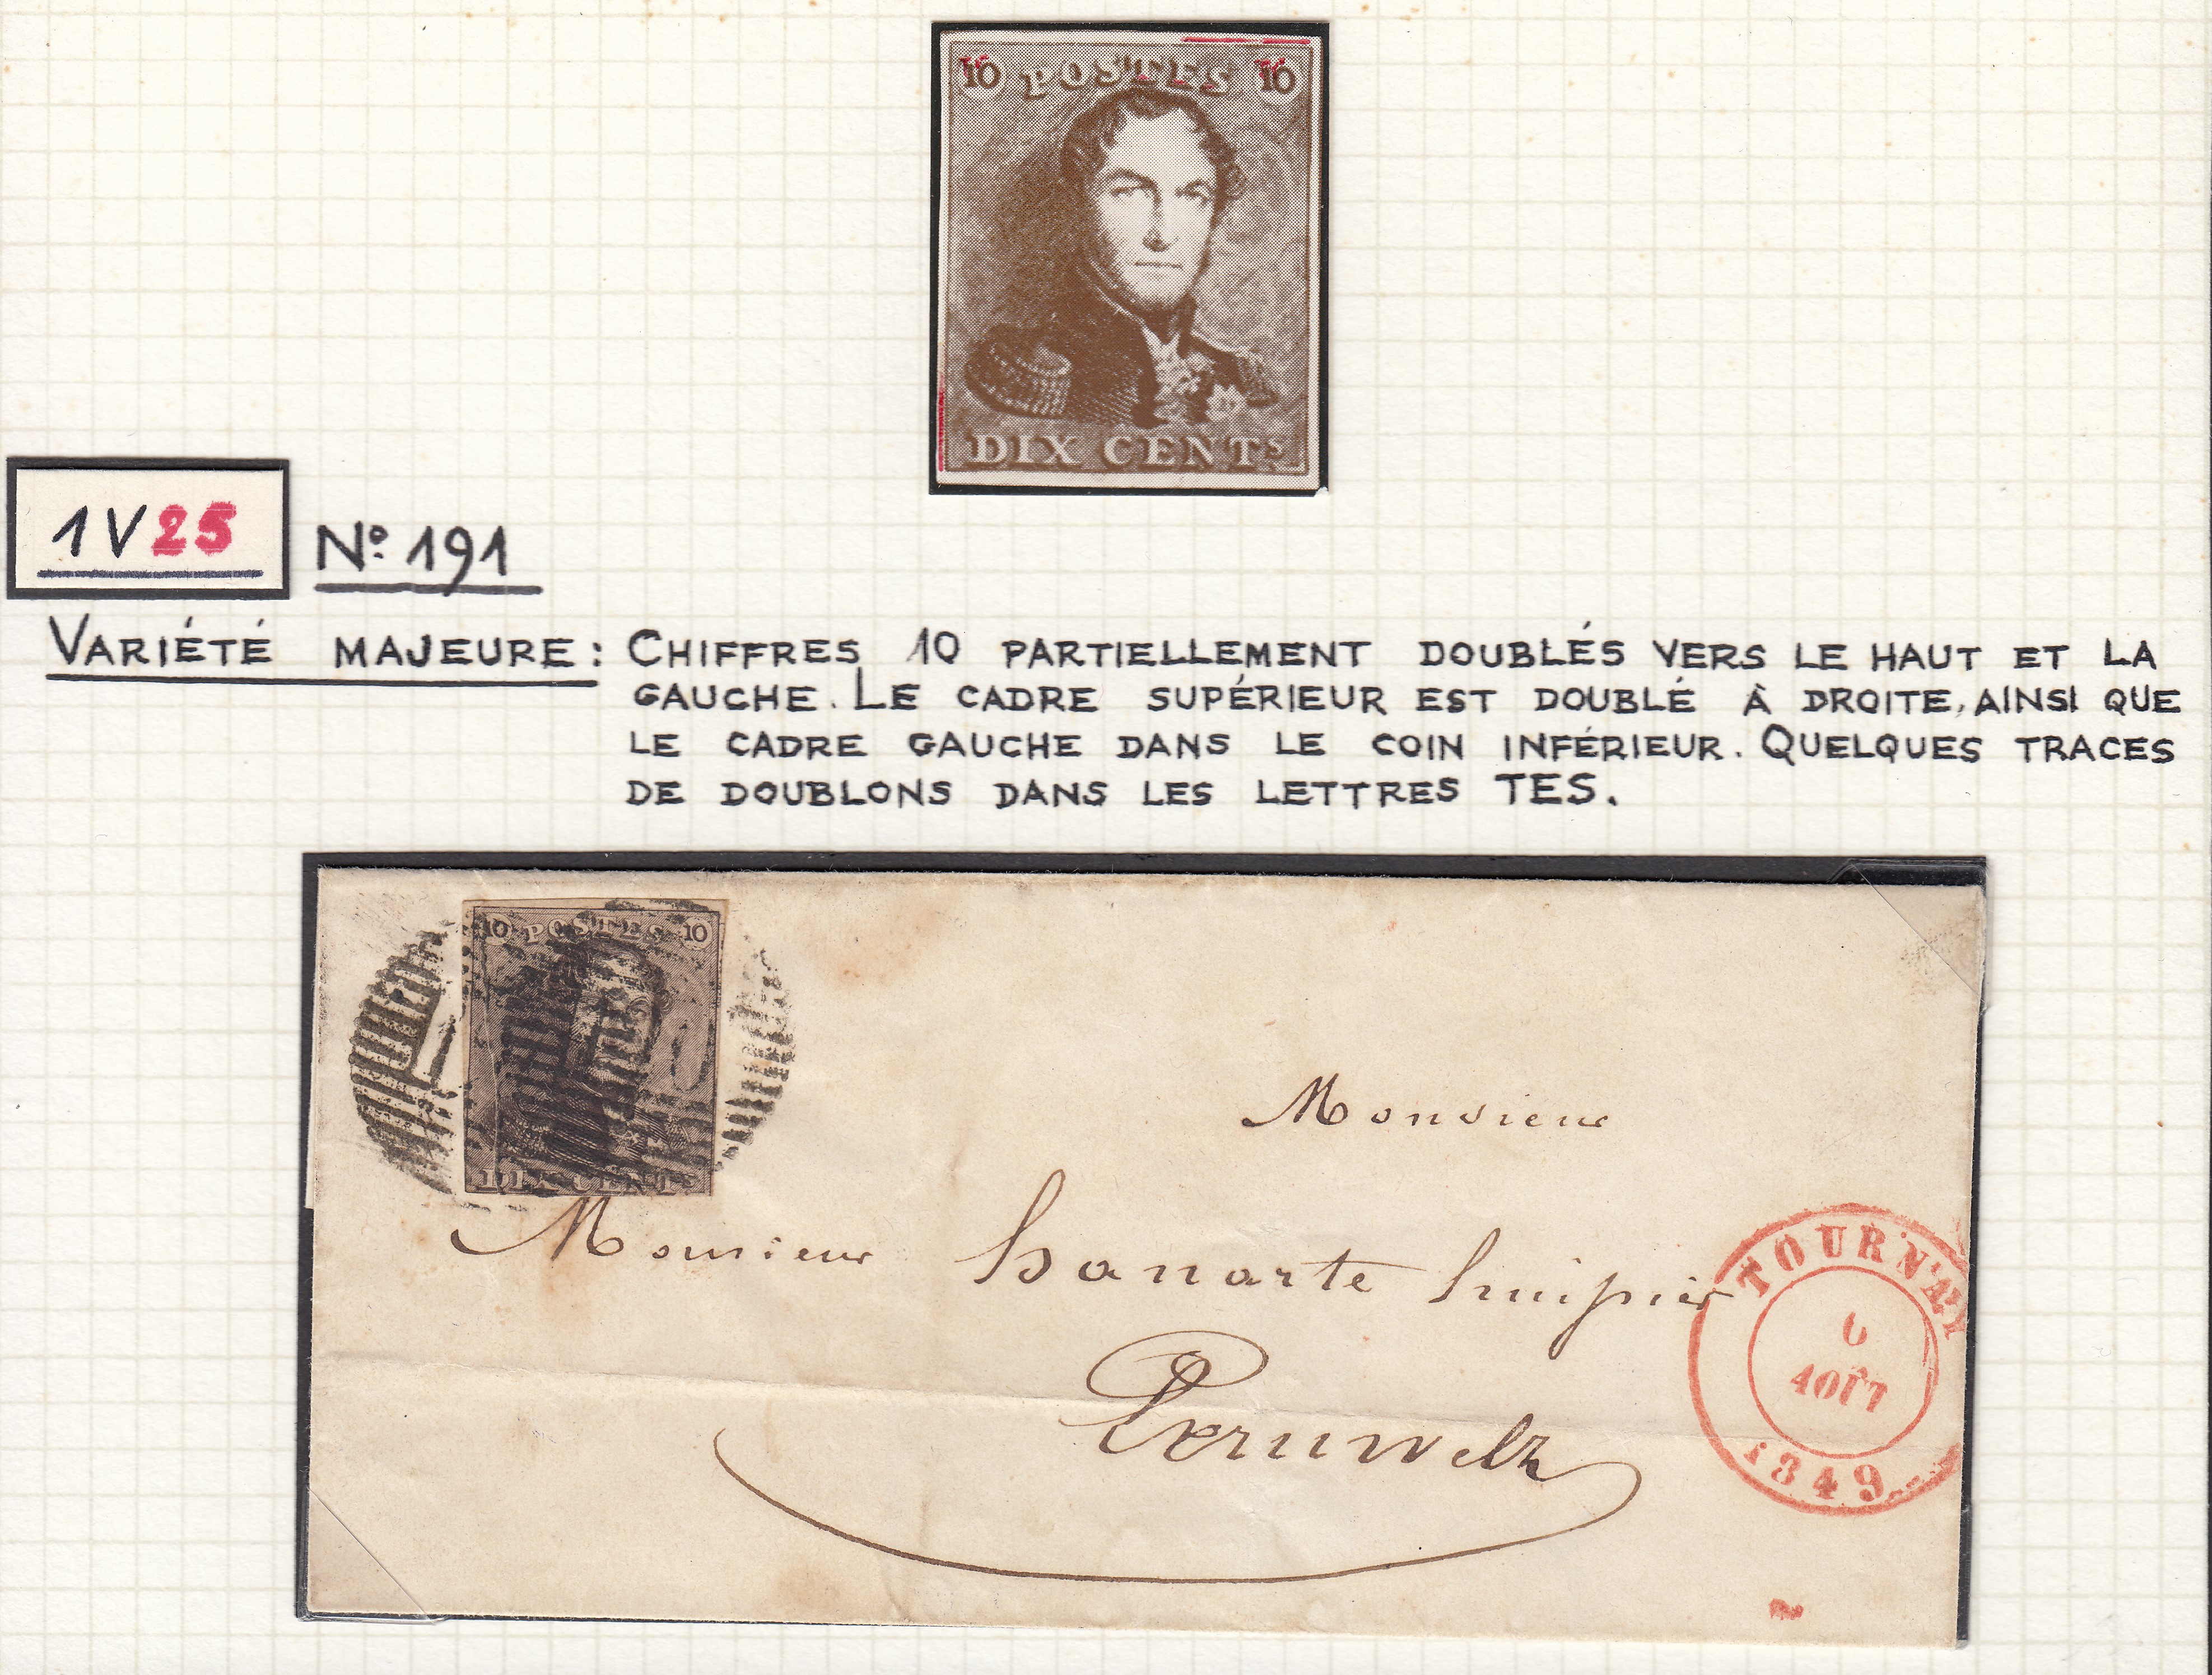 10 POSTES 10
DIX CENTS
1V25 No. 191
VARIÉTÉ MAJEURE: CHIFFRES 10 PARTIELLEMENT DOUBLÉS VERS LE HAUT ET LA
GAUCHE. LE CADRE SUPÉRIEUR EST DOUBLÉ À DROITE, AINSI QUE
LE CADRE GAUCHE DANS LE COIN INFÉRIEUR. QUELQUES TRACES
DE DOUBLONS DANS LES LETTRES TES.
10 POSTES 10
DIX CENTS
Monsieur
Monsieur
Peruwelz
TOURNAY
6
AOUT
1849